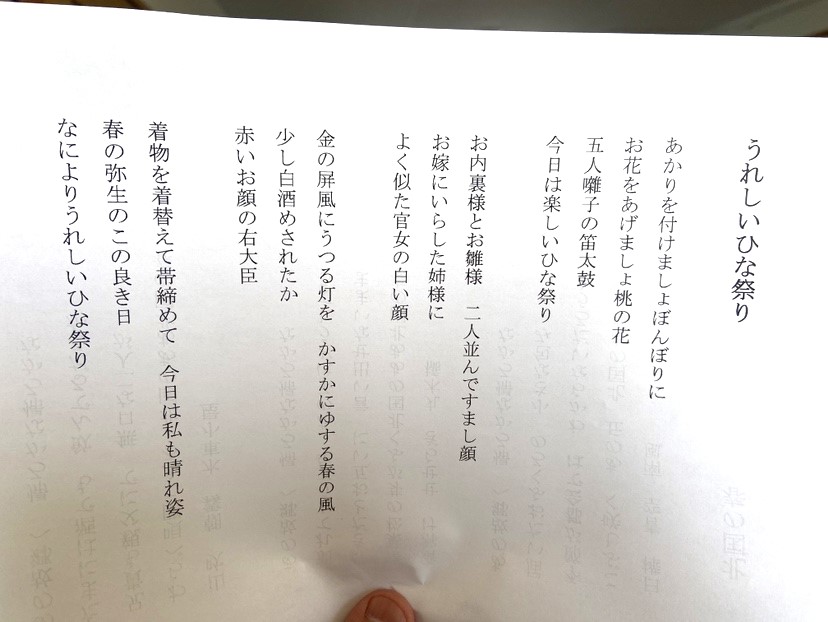 うれしいひな祭り
あかりを付けましょぼんぼりに
お花をあげましょ桃の花
五人囃子の笛太鼓
今日は楽しいひな祭り
お内裏様とお雛様　二人並んですまし顔
お嫁にいらした姉様に
よく似た官女の白い顔
金の屏風にうつる灯を　かすかにゆする春の風
少し白酒めされたか
赤いお顔の右大臣
着物を着替えて帯締めて　今日は私も晴れ姿
春の弥生のこの良き日
なによりうれしいひな祭り